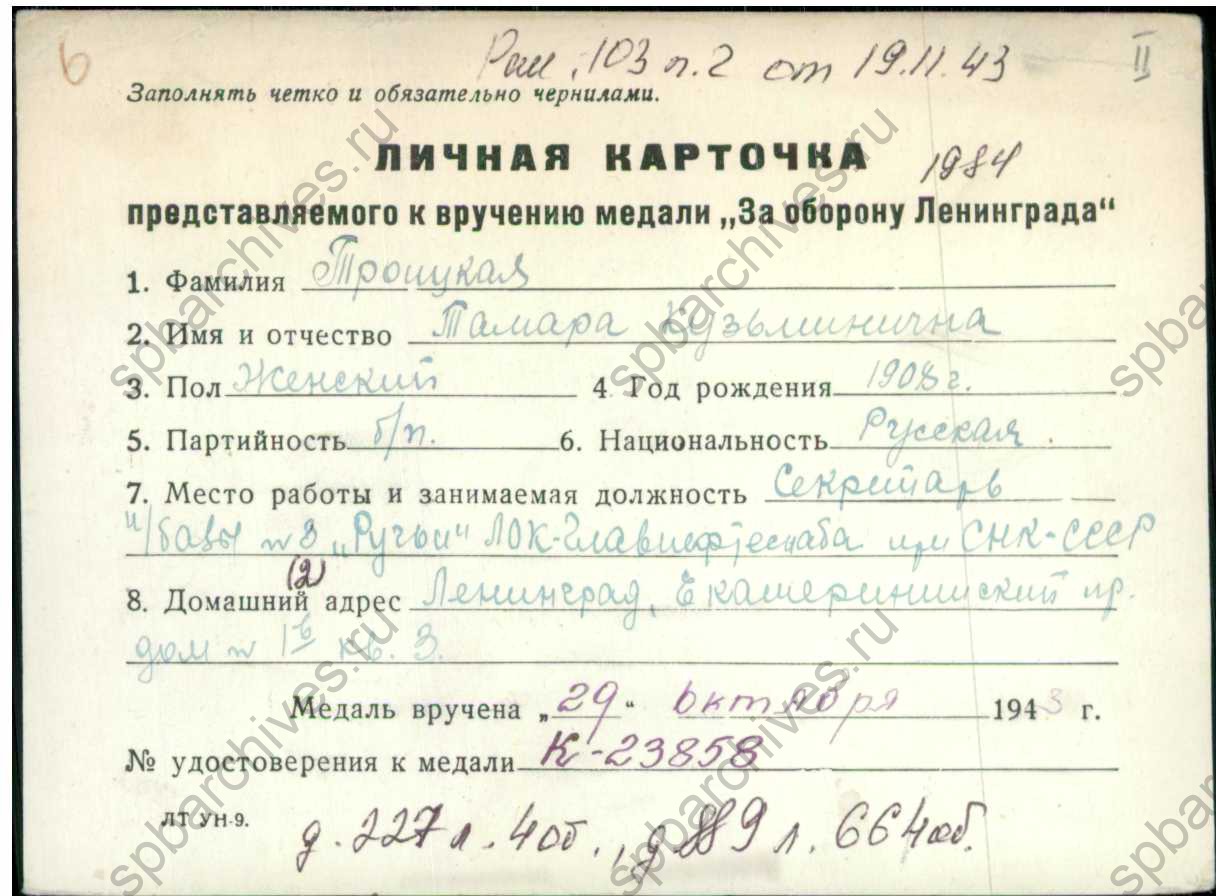 6
Рай. 103 п.2 от 19.11.43
II
Заполнять четко и обязательно чернилами.
ЛИЧНАЯ КАРТОЧКА
1984
представляемого к вручению медали „За оборону Ленинграда“
1. Фамилия Троицкая
2. Имя и отчество Тамара Кузьминична
3. Пол Женский 4. Год рождения 1908 г.
5. Партийность б/п. 6. Национальность Русская.
7. Место работы и занимаемая должность Секретарь
н/базы № 3 „Ручьи“ ЛОК-Главнефтеснаба при СНК-СССР
(2)
8. Домашний адрес Ленинград, Екатерининский пр.
дом № 1б кв. 3.
Медаль вручена „29“ октября 1943 г.
№ удостоверения к медали К-23858
ЛТ УН-9.
д. 227 л. 4об., д 9 л. 664об.
spbarchives.ru